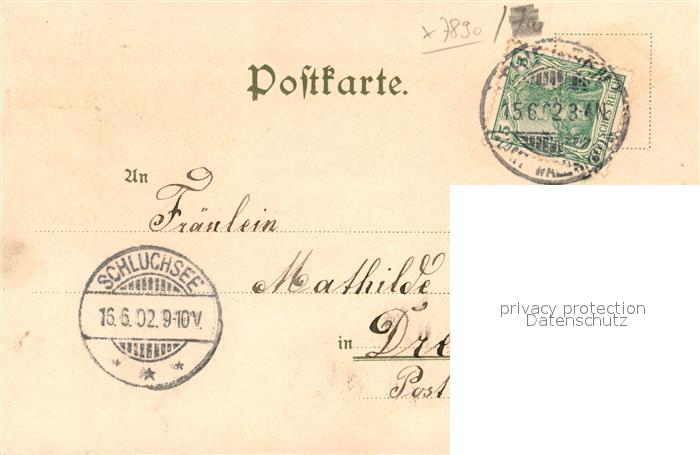 x 7890 / 7a
Postkarte.
15.6.02.3-4N.
DEUTSCHES REICH
5
An
Fräulein
SCHLUCHSEE
Mathilde
16.6.02.9-10V.
privacy protection
Datenschutz
in Dre
Post